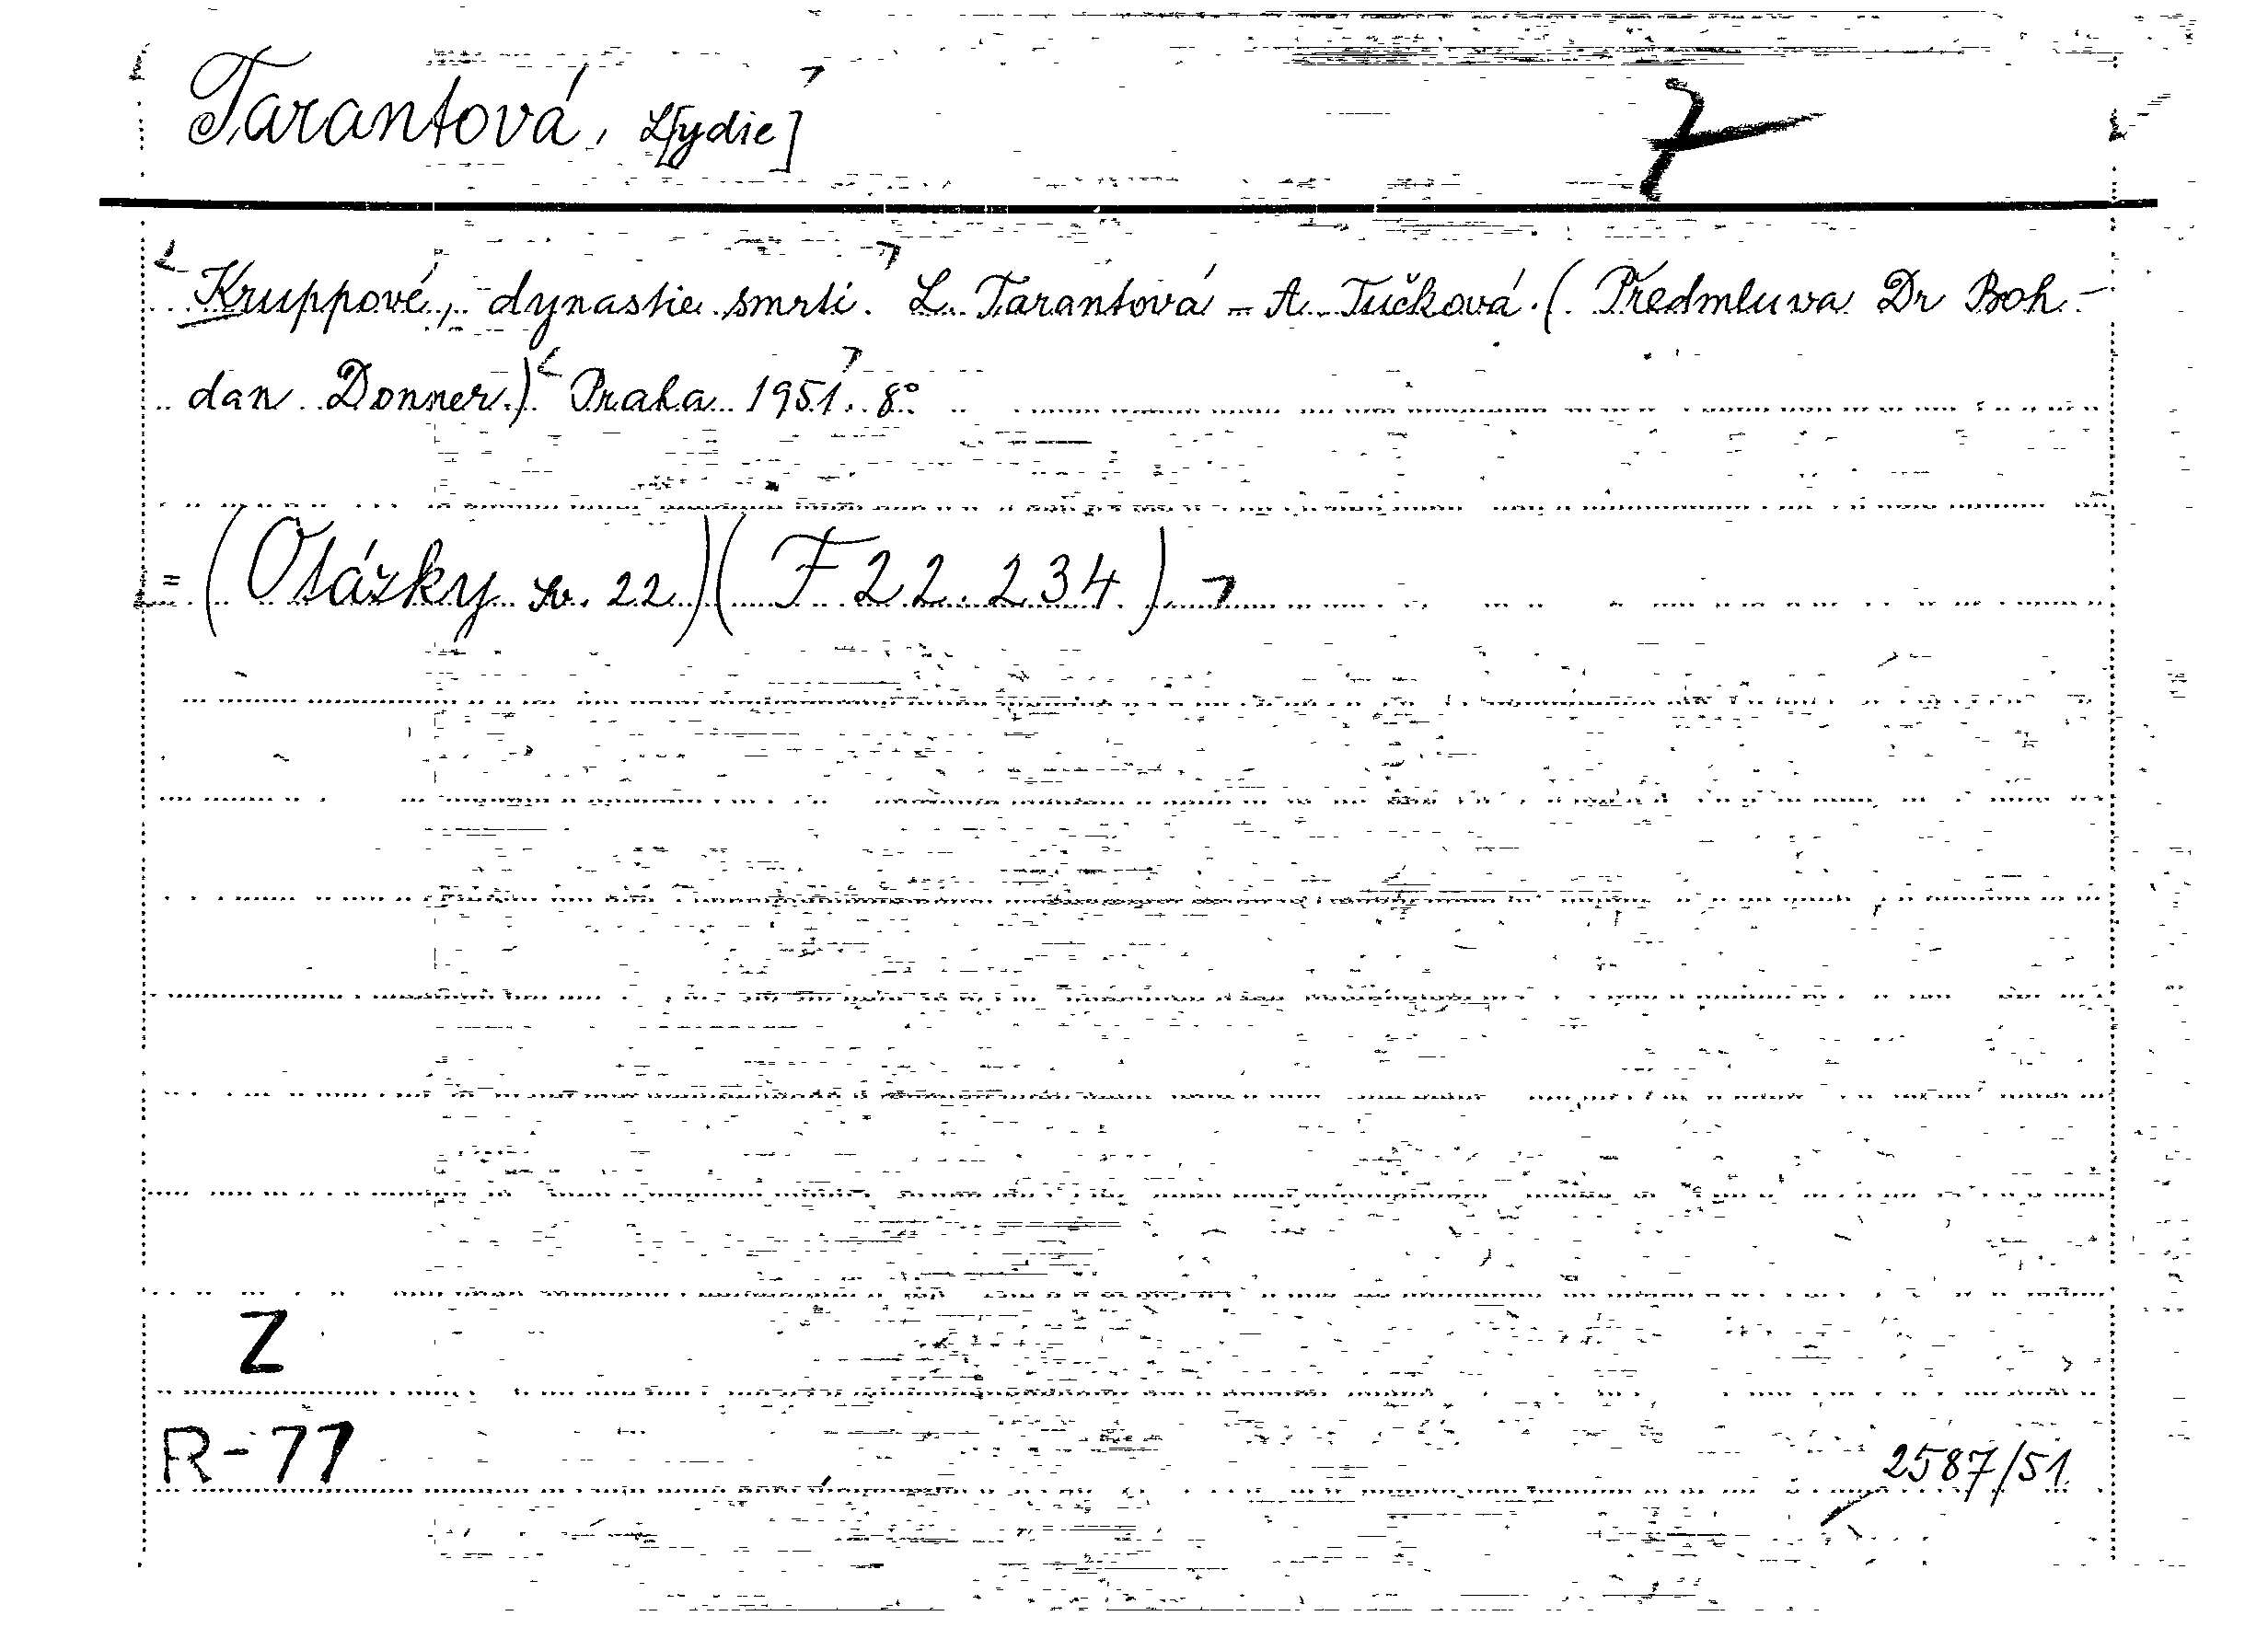 Tarantová, L[ydie] 7
Kruppové, dynastie smrti. L. Tarantová - A. Tučková. (Předmluva Dr Boh-
dan Donner.) Praha 1951. 8°
= (Otázky sv. 22) (F 22.234)
Z
R-77
2587/51.